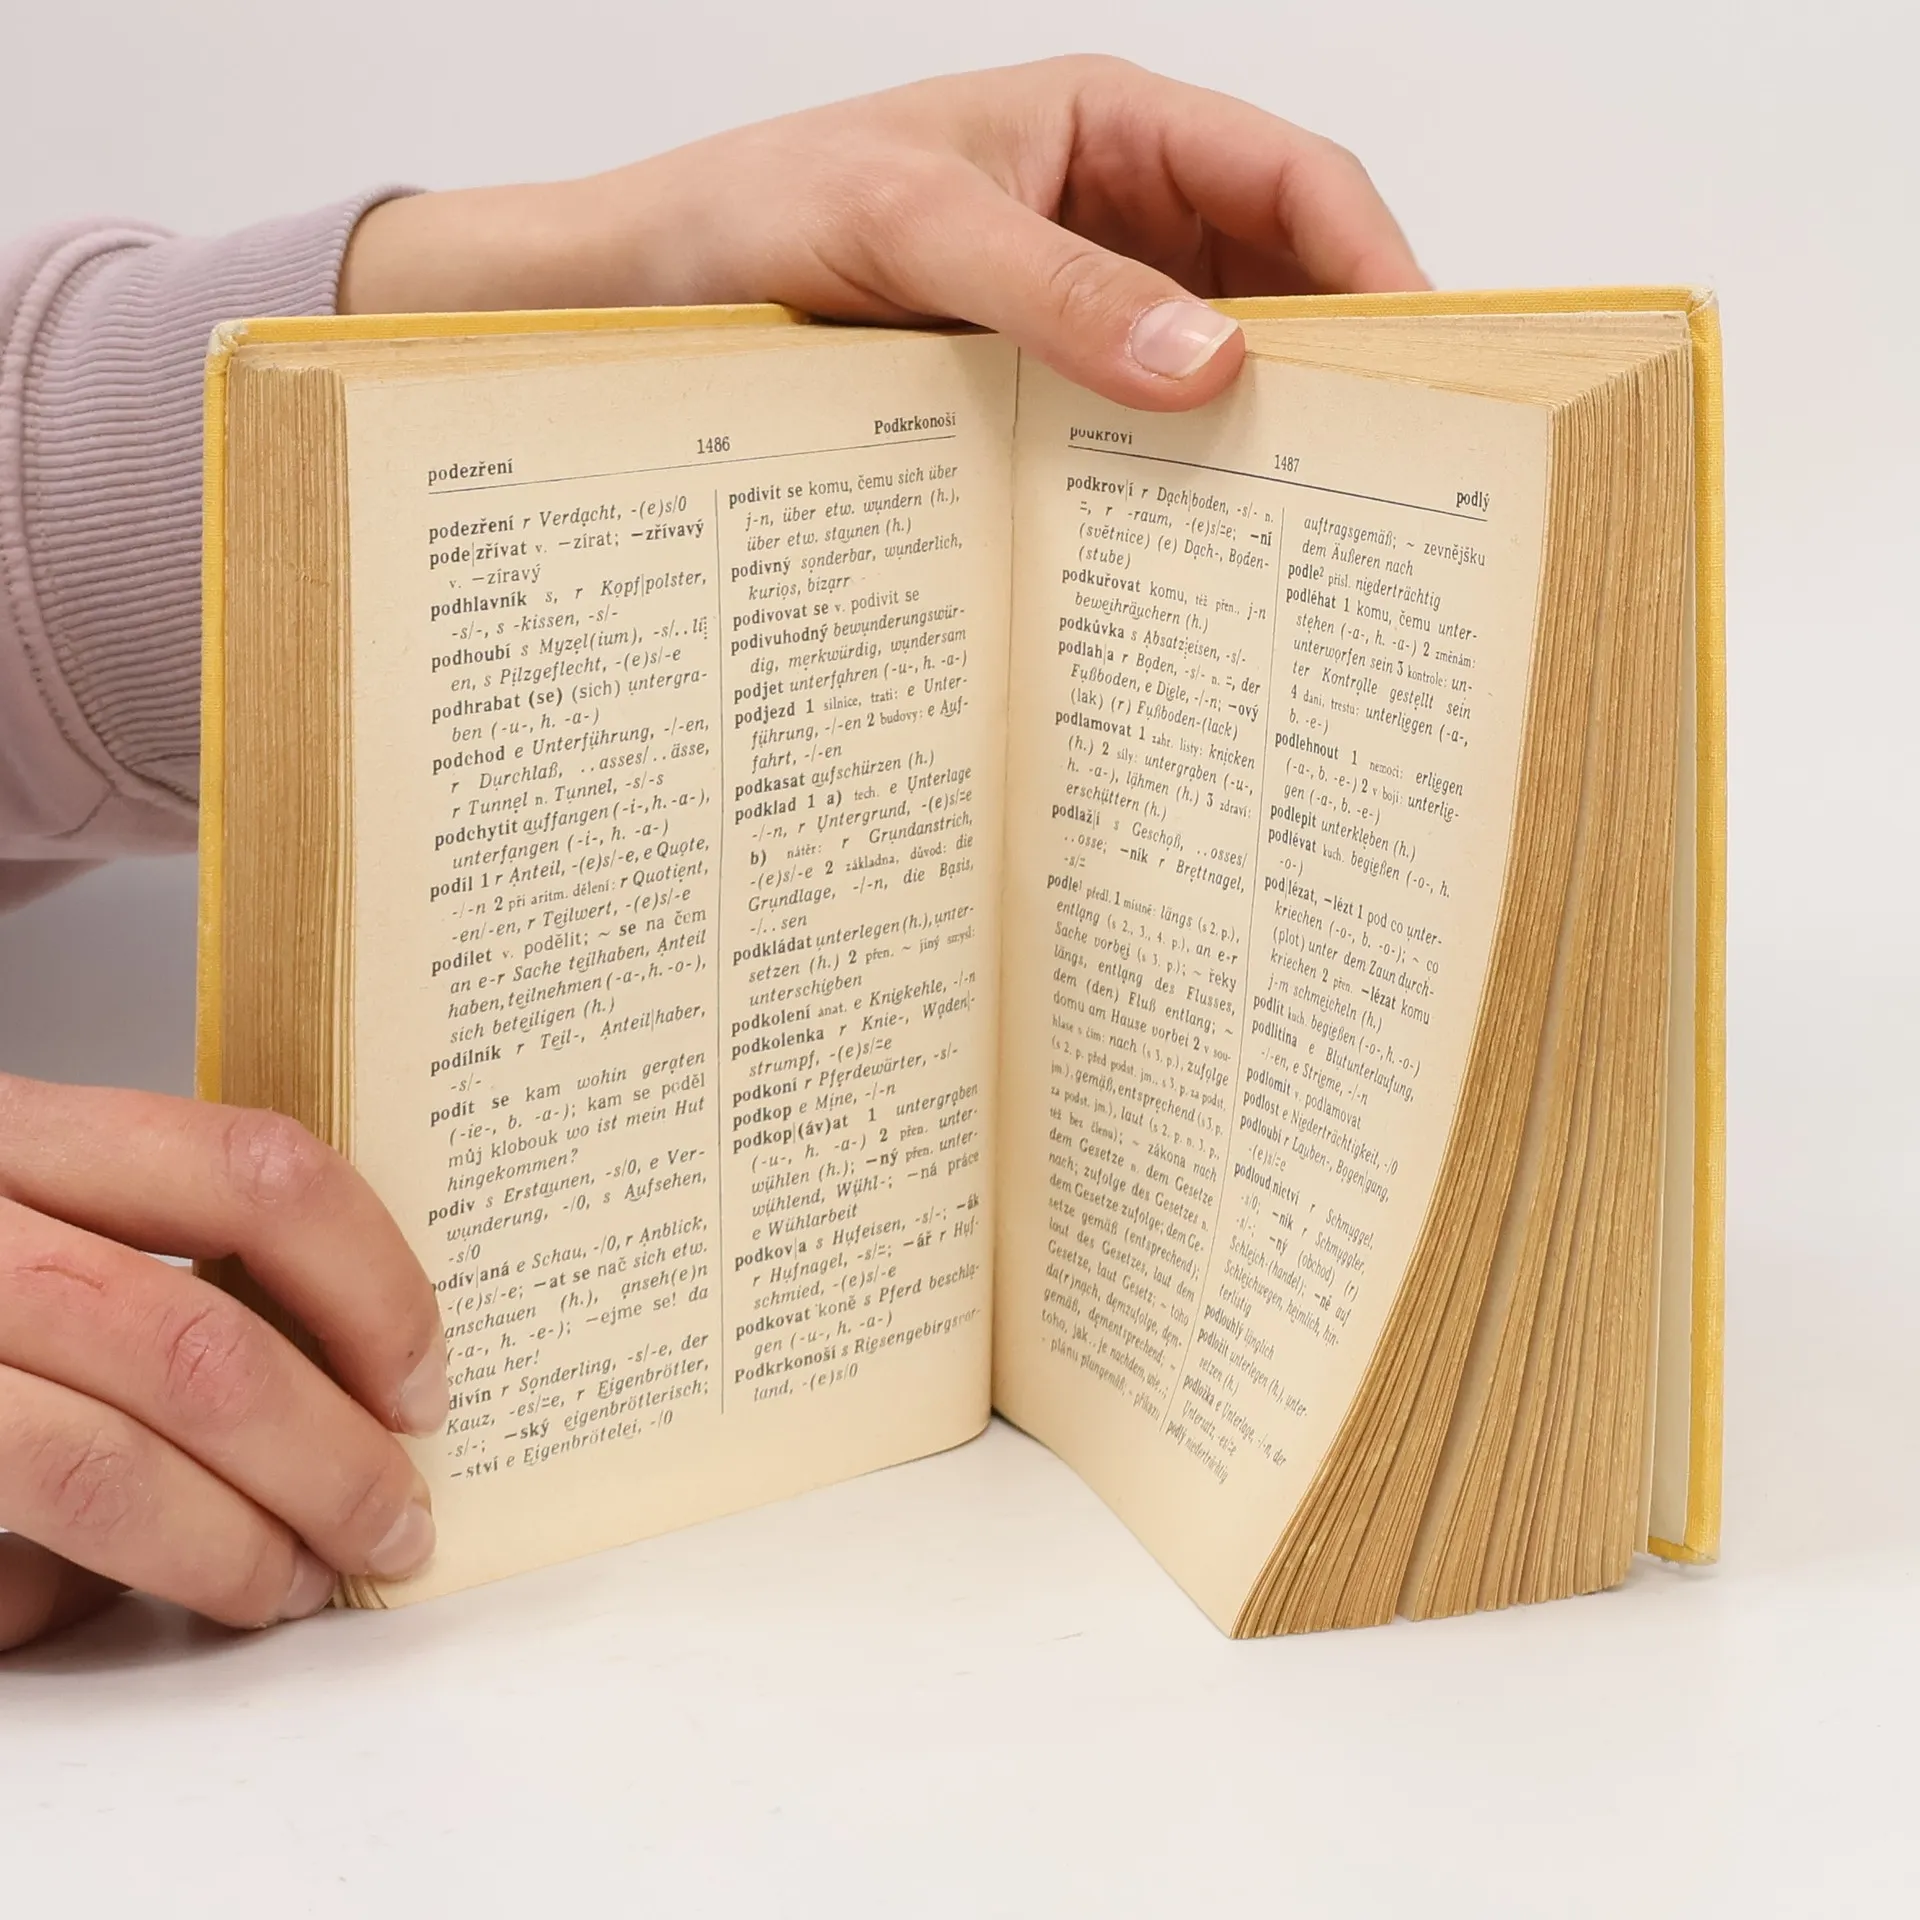 podezření
1486
Podkrkonoší
podezření r Verdacht, -(e)s/0
pode|zřívat v. —zírat; —zřívavý
v. —zíravý
podhlavník s, r Kopf|polster,
-s/-, s -kissen, -s/-
podhoubí s Myzel(ium), -s/..li
en, s Pilzgeflecht, -(e)s/-e
podhrabat (se) (sich) untergra-
ben (-u-, h. -a-)
podchod e Unterführung, -/-en,
r Durchlaß, ..asses/..ässe,
r Tunnel n. Tunnel, -s/-s
podchytit auffangen (-i-, h. -a-),
unterfangen (-i-, h. -a-)
podíl 1 r Anteil, -(e)s/-e, e Quote,
-/-n 2 při aritm. dělení: r Quotient,
-en/-en, r Teilwert, -(e)s/-e
podílet v. podělit; ~ se na čem
an e-r Sache teilhaben, Anteil
haben, teilnehmen (-a-, h. -o-),
sich beteiligen (h.)
podílník r Teil-, Anteil|haber,
-s/-
podít se kam wohin geraten
(-ie-, b. -a-); kam se poděl
můj klobouk wo ist mein Hut
hingekommen?
podiv s Erstaunen, -s/0, e Ver-
wunderung, -/0, s Aufsehen,
-s/0
podív|aná e Schau, -/0, r Anblick,
-(e)s/-e; —at se nač sich etw.
anschauen (h.), anseh(e)n
(-a-, h. -e-); —ejme se! da
schau her!
divín r Sonderling, -s/-e, der
Kauz, -es/=e, r Eigenbrötler,
-s/-; —ský eigenbrötlerisch;
—ství e Eigenbrötelei, -/0
podivit se komu, čemu sich über
j-n, über etw. wundern (h.),
über etw. staunen (h.)
podivný sonderbar, wunderlich,
kurios, bizarr
podivovat se v. podivit se
podivuhodný bewunderungswür-
dig, merkwürdig, wundersam
podjet unterfahren (-u-, h. -a-)
podjezd 1 silnice, trati: e Unter-
führung, -/-en 2 budovy: e Auf-
fahrt, -/-en
podkasat aufschürzen (h.)
podklad 1 a) tech. e Unterlage
-/-n, r Untergrund, -(e)s/=e
b) nátěr: r Grundanstrich,
-(e)s/-e 2 základna, důvod: die
Grundlage, -/-n, die Basis,
-/..sen
podkládat unterlegen (h.), unter-
setzen (h.) 2 přen. ~ jiný smysl:
unterschieben
podkolení anat. e Kniekehle, -/-n
podkolenka r Knie-, Waden|-
strumpf, -(e)s/=e
podkoní r Pferdewärter, -s/-
podkop e Mine, -/-n
podkop|(áv)at 1 untergraben
(-u-, h. -a-) 2 přen. unter-
wühlen (h.); —ný přen. unter-
wühlend, Wühl-; —ná práce
e Wühlarbeit
podkov|a s Hufeisen, -s/-; —ák
r Hufnagel, -s/=; —ář r Huf-
schmied, -(e)s/-e
podkovat koně s Pferd beschla-
gen (-u-, h. -a-)
Podkrkonoší s Riesengebirgsvor-
land, -(e)s/0
podkroví
1487
podlý
podkrov|í r Dach|boden, -s/- n.
=, r -raum, -(e)s/=e; —ní
(světnice) (e) Dach-, Boden-
(stube)
podkuřovat komu, též přen., j-n
beweihräuchern (h.)
podkůvka s Absatzeisen, -s/-
podlah|a r Boden, -s/- n. =, der
Fußboden, e Diele, -/-n; —ový
(lak) (r) Fußboden-(lack)
podlamovat 1 zahr. listy: knicken
(h.) 2 síly: untergraben (-u-,
h. -a-), lähmen (h.) 3 zdraví:
erschüttern (h.)
podlaž|í s Geschoß, ..osses/
..osse; —ník r Brettnagel,
-s/=
podle¹ předl. 1 místně: längs (s 2. p.),
entlang (s 2., 3., 4. p.), an e-r
Sache vorbei (s 3. p.); ~ řeky
längs, entlang des Flusses,
dem (den) Fluß entlang; ~
domu am Hause vorbei 2 v sou-
hlase s čím: nach (s 3. p.), zufolge
(s 2. p. před podst. jm., s 3. p. za podst.
jm.), gemäß, entsprechend (s 3. p.
za podst. jm.), laut (s 2. p. n. 3. p.,
též bez členu); ~ zákona nach
dem Gesetze n. dem Gesetze
nach; zufolge des Gesetzes n.
dem Gesetze zufolge; dem Ge-
setze gemäß (entsprechend);
laut des Gesetzes, laut dem
Gesetze, laut Gesetz; ~ toho
da(r)nach, demzufolge, dem-
gemäß, dementsprechend; ~
toho, jak.. je nachdem, wie..;
~ plánu plangemäß; ~ příkazu
auftragsgemäß; ~ zevnějšku
dem Äußeren nach
podle² přísl. niederträchtig
podléhat 1 komu, čemu unter-
stehen (-a-, h. -a-) 2 změnám:
unterworfen sein 3 kontrole: un-
ter Kontrolle gestellt sein
4 dani, trestu: unterliegen (-a-,
b. -e-)
podlehnout 1 nemoci: erliegen
(-a-, b. -e-) 2 v boji: unterlie-
gen (-a-, b. -e-)
podlepit unterkleben (h.)
podlévat kuch. begießen (-o-, h.
-o-)
pod|lézat, —lézt 1 pod co unter-
kriechen (-o-, b. -o-); ~ co
(plot) unter dem Zaun durch-
kriechen 2 přen. —lézat komu
j-m schmeicheln (h.)
podlít kuch. begießen (-o-, h. -o-)
podlitina e Blutunterlaufung,
-/-en, e Strieme, -/-n
podlomit v. podlamovat
podlost e Niederträchtigkeit, -/0
podloubí r Lauben-, Bogen|gang,
-(e)s/=e
podloudnictví r Schmuggel,
-s/0; —ník r Schmuggler,
-s/-; —ný (obchod) (r)
Schleich-(handel); —ně auf
Schleichwegen, heimlich, hin-
terlistig
podlouhlý länglich
podložit unterlegen (h.), unter-
setzen (h.)
podložka e Unterlage, -/-n, der
Untersatz, -es/=e
podlý niederträchtig